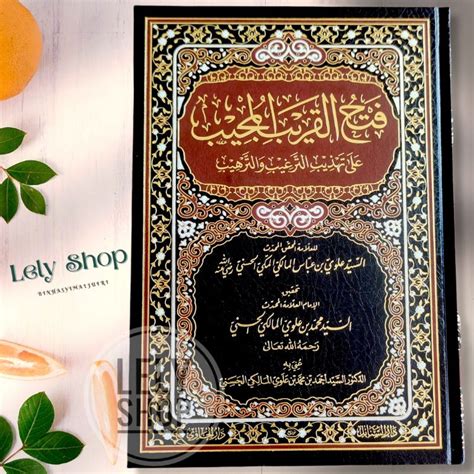 Lely Shop
BINHASYEMALJUFRI
فتح القريب المجيب
على تهذيب الترغيب والترهيب
للعلامة المحقق المحدث
السيد علوي بن عباس المالكي المكي الحسني رضي الله عنه
تحقيق
الإمام العلامة المحدث
السيد محمد بن علوي المالكي الحسني
رحمه الله تعالى
عني به
الدكتور السيد أحمد بن محمد بن علوي المالكي الحسني
LELY
SHOP